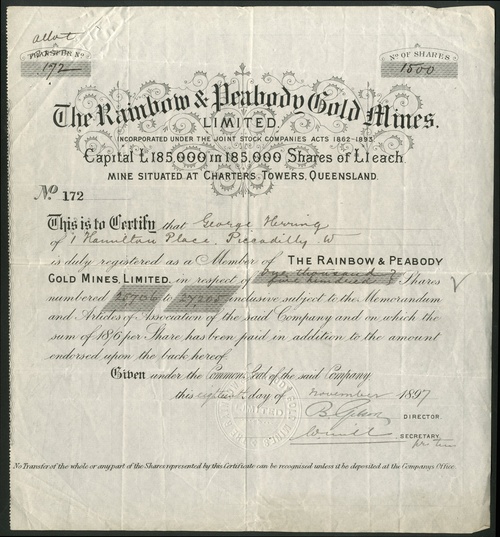 allot
TRANSFER No.
172
No OF SHARES
1500
The Rainbow & Peabody Gold Mines.
LIMITED.
INCORPORATED UNDER THE JOINT STOCK COMPANIES ACTS 1862-1893.
Capital £185,000 in 185,000 Shares of £1 each
MINE SITUATED AT CHARTERS TOWERS, QUEENSLAND.
No. 172
This is to Certify that George Herring
of 1 Hamilton Place, Piccadilly W
is duly registered as a Member of THE RAINBOW & PEABODY
GOLD MINES, LIMITED, in respect of one thousand & five hundred Shares
numbered 25706 to 27205 inclusive subject to the Memorandum
and Articles of Association of the said Company and on which the
sum of 18/6 per Share has been paid in addition to the amount
endorsed upon the back hereof.
Given under the Common Seal of the said Company
this eighteenth day of November 1897
DIRECTOR.
SECRETARY.
pro tem
No Transfer of the whole or any part of the Shares represented by this Certificate can be recognised unless it be deposited at the Companys Office.